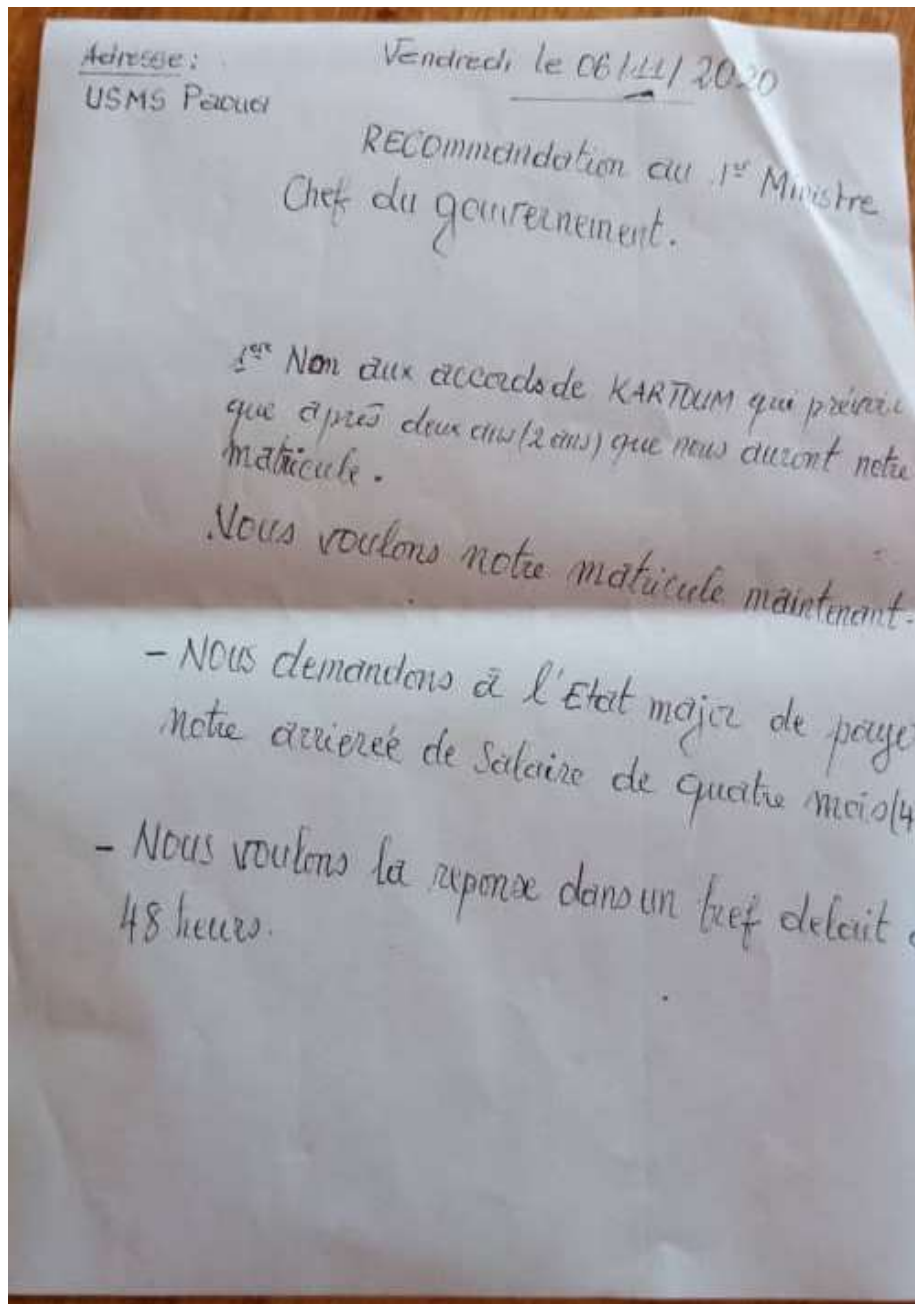 Adresse :
Vendredi le 06/11/2020
USMS Paoua
RECommandation au 1er Ministre
Chef du gouvernement.
1ere Non aux accords de KARTOUM qui prévoi
que après deux ans (2 ans) que nous auront notre
matricule.
Nous voulons notre matricule maintenant.
- Nous demandons à l'Etat major de paye
notre arriereé de Salaire de quatre mois (4
- Nous voulons la reponse dans un bref delait
48 heurs.